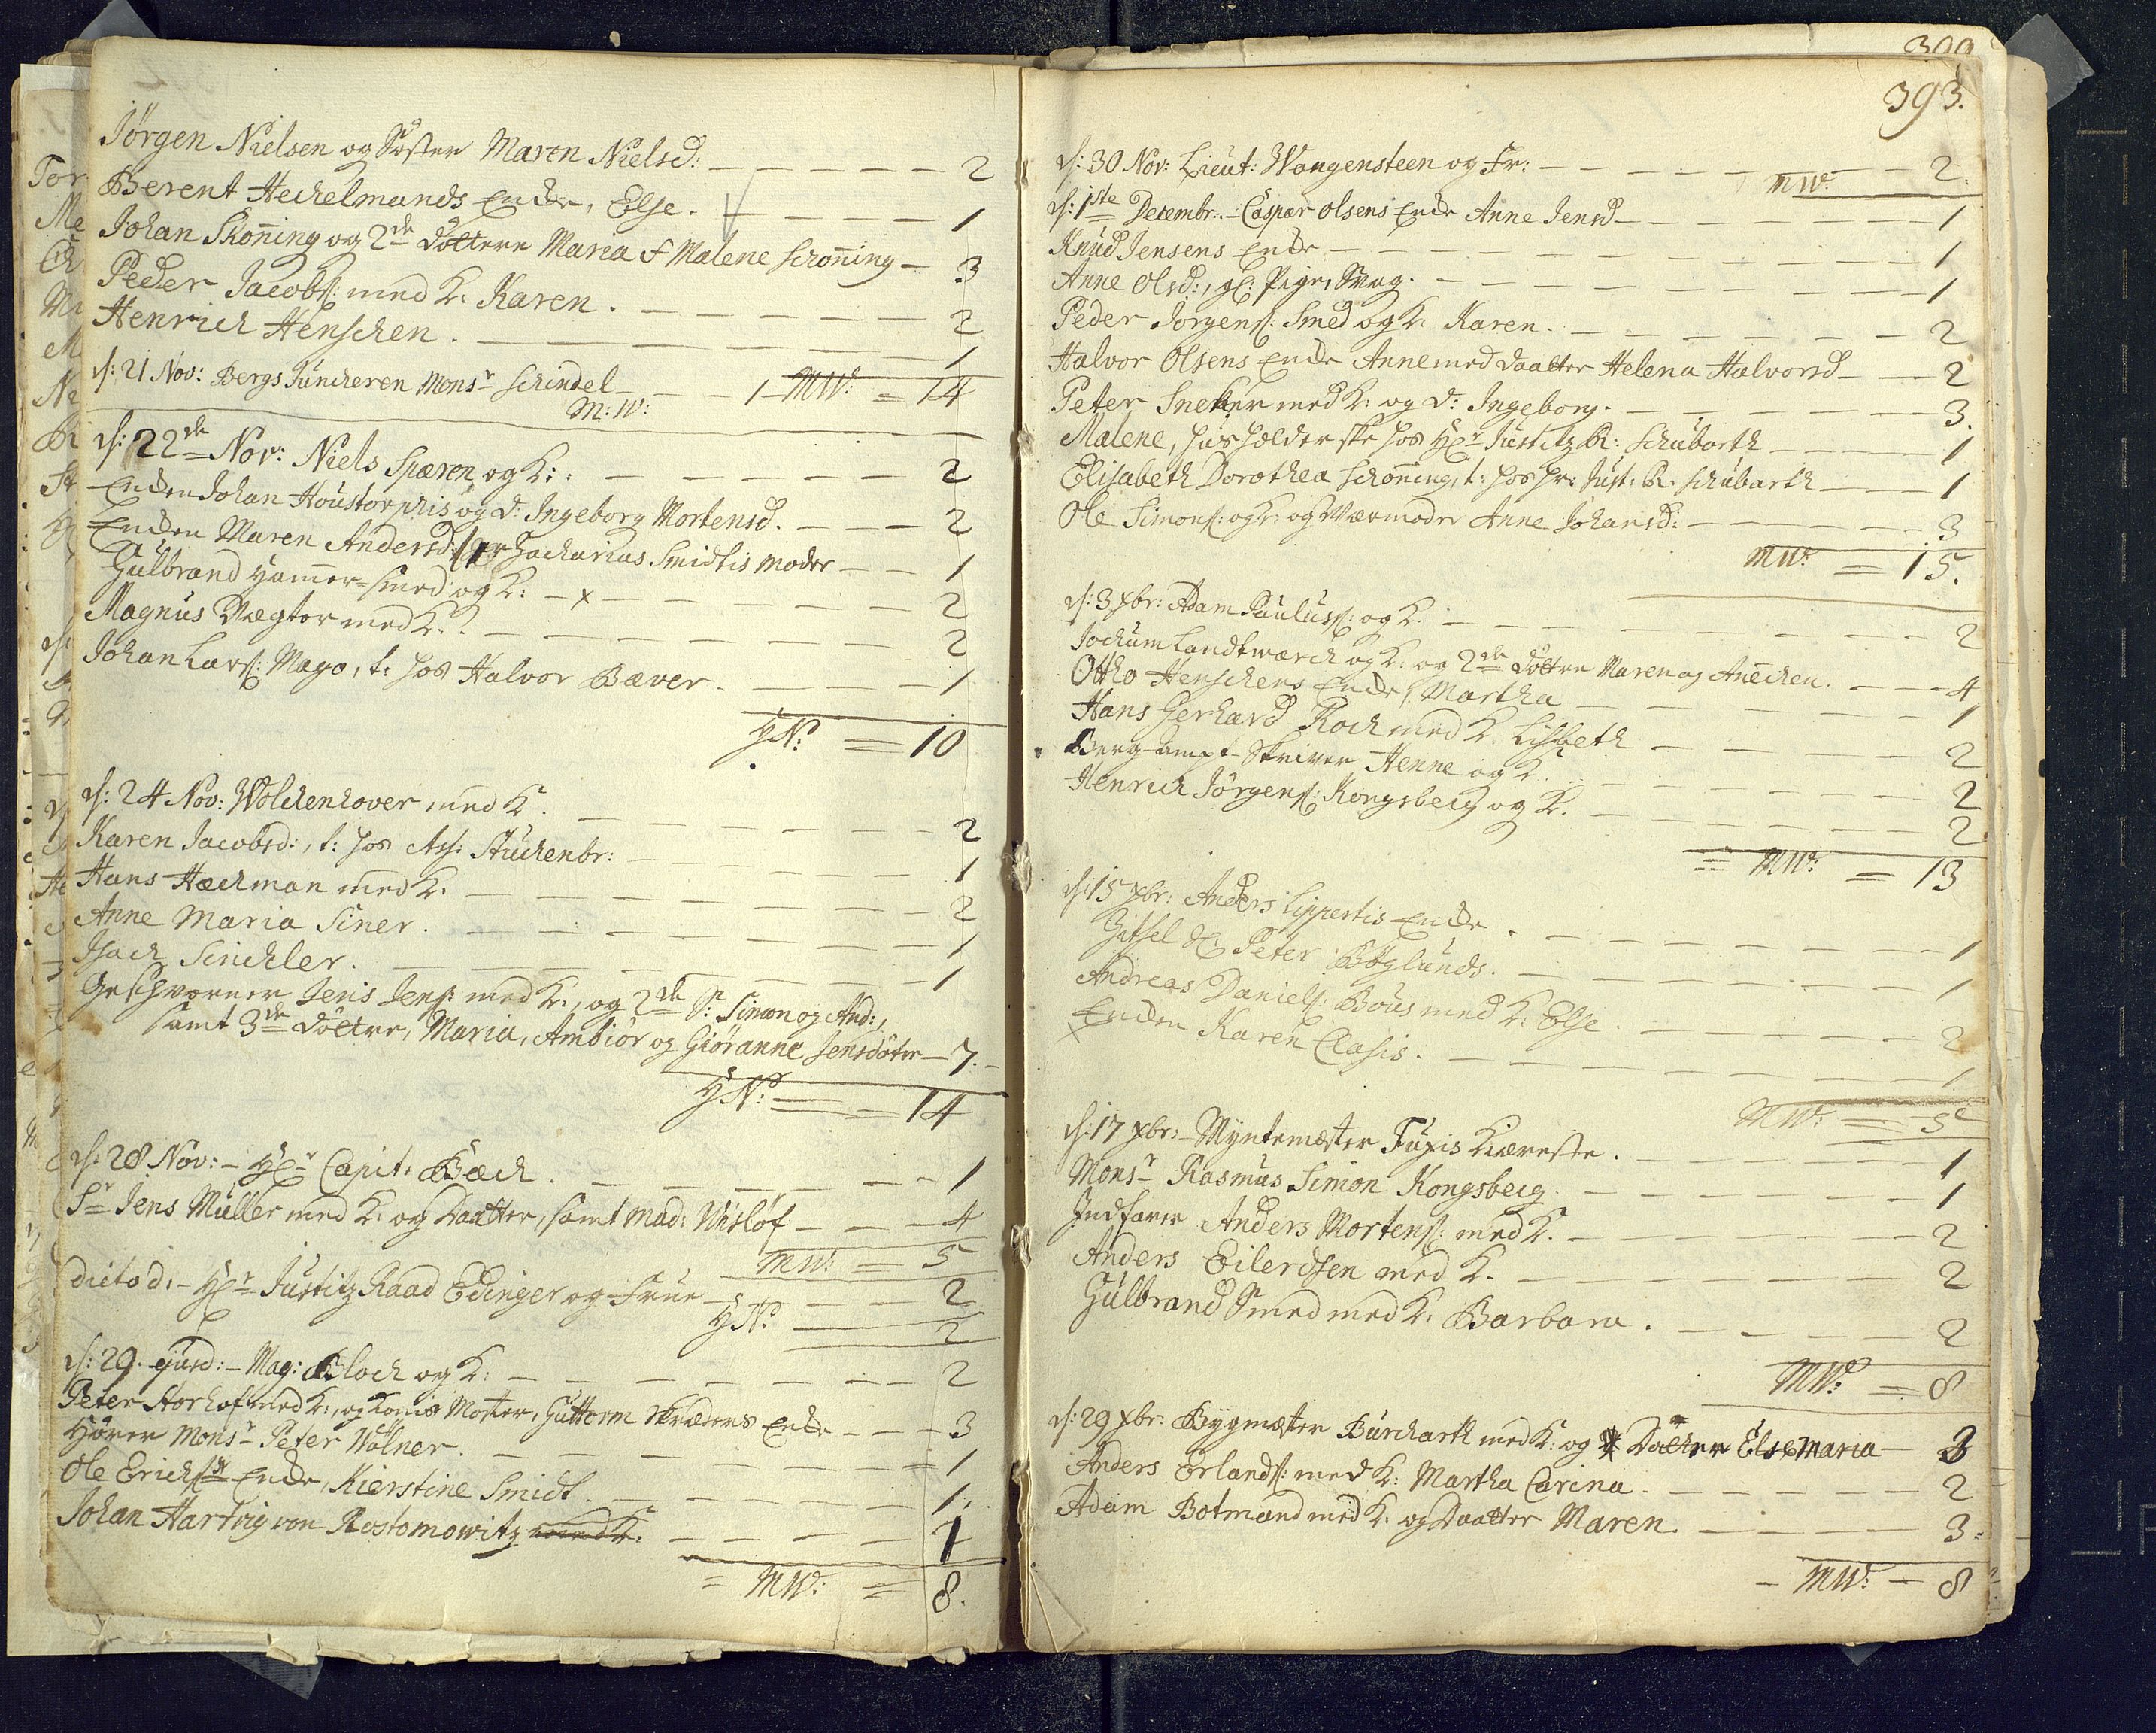 Jörgen Nielsen og Söster Maren Nielsd: — 2
Berent Heckelmands Enche, Else. — 1
Johan Skoning og 2de döttere Maria & Malene Schoning — 3
Peder Jacobs: med K. Karen. — 2
Henrich Henschen. — 1
MW: = 14
d: 21 Nov: Bergs Junckeren Monsr Schindel — 1
M: W:
d: 22de Nov: Niels Spæren og K: — 2
Encken Johan Houstorphis og D: Ingeborg Mortensd. — 2
Encken Maren Andersd: Zacharias Smidtis Moder — 1
Gulbrand Hamer=smed og K: — x — 2
Magnus Vægter med K: — 2
Johan Lars: Mago, t: hos Halvor Bæver. — 1
HN: = 10
d: 24 Nov: Wolckenhover med K. — 2
Karen Jacobsd:, t: hos Ass: Stuckenbr: — 1
Hans Hackman med K. — 2
Anne Maria Siner. — 1
Isach Sinckler. — 1
Geschworner Jens Jens: med K:, og 2de S: Simon og And:,
samt 3de döttre, Maria, Ambiör og Giöranne Jensdöter — 7.
HN: = 14
d: 28 Nov: — Hr Capit: Bæck. — 1
Sr Jens Müller med K: og Daatter, samt Mad: Wisløf — 4
MW: = 5
dicto d: — Hr Justitz Raad Edinger og Frue — 2
HN: 2
d: 29. ejusd: — Mag: Bloch og K: — 2
Peter Storhof med K:, og Konis Moster, Guttorm Skræders Encke — 3
Hörer Monsr Peter Wölner. — 1
Ole Erichs: Encke, Kierstine Smidt. — 1.
Johan Hartvig von Rostomowitz med K. — 1
= MW: = 8.
399
393.
d: 30 Nov: Lieut: Wangensteen og Fr: — 2.
MW:
d: 1ste Decembr: — Caspar Olsens Encke Anne Jensd — 1
Knud Jensens Encke — 1
Anne Olsd:, gl: Pige, Svag. — 1
Peder Jörgens: Smed og K: Karen. — 2
Halvor Olsens Encke Anne med Daatter Helena Halvorsd — 2
Peter Sneker med K: og D: Ingeborg. — 3.
Malene, Huusholderske hos Hr Justitz R: Schubarth — 1
Elisabeth Dorothea Schoning, t: hos Hr: Just: R. Schubarth — 1
Ole Simons: og K: og Værmoder Anne Johansd: — 3
MW: = 15.
d: 3 xbr: Adam Paulus: og K. — 2
Jochum Landtwærck og K: og 2de döttre Maren og Anneken. — 4
Otho Henschens Encke, Martha — 1
Hans Gerhard Koch med K. Lisbeth — 2
Berg-Ampt-Skriver Henne og K. — 2
Henrich Jörgens: Kongsberg og K. — 2
= MW: = 13
d: 15 xbr: Anders Lippertis Encke. — 1
Gitsel Peter Böglunds. — 1
Andreas Daniels: Bous med K: Else. — 2
Encken Karen Clasis. — 1
MW: = 5
d: 17 xbr: — Myntemester Fuxis Kiæreste. — 1
Monsr Rasmus Simon Kongsberg. — 1
Indfarer Anders Mortens: med K. — 2
Anders Eilerdsen med K. — 2
Gulbrand Smed med K. Barbara. — 2
MW: = 8
d: 29 xbr: Bygmester Burcharth med K: og Datter Else Maria — 3
Anders Erlands: med K: Martha Carina. — 2
Adam Botmand med K: og Daatter Maren. — 3.
— MW: — 8